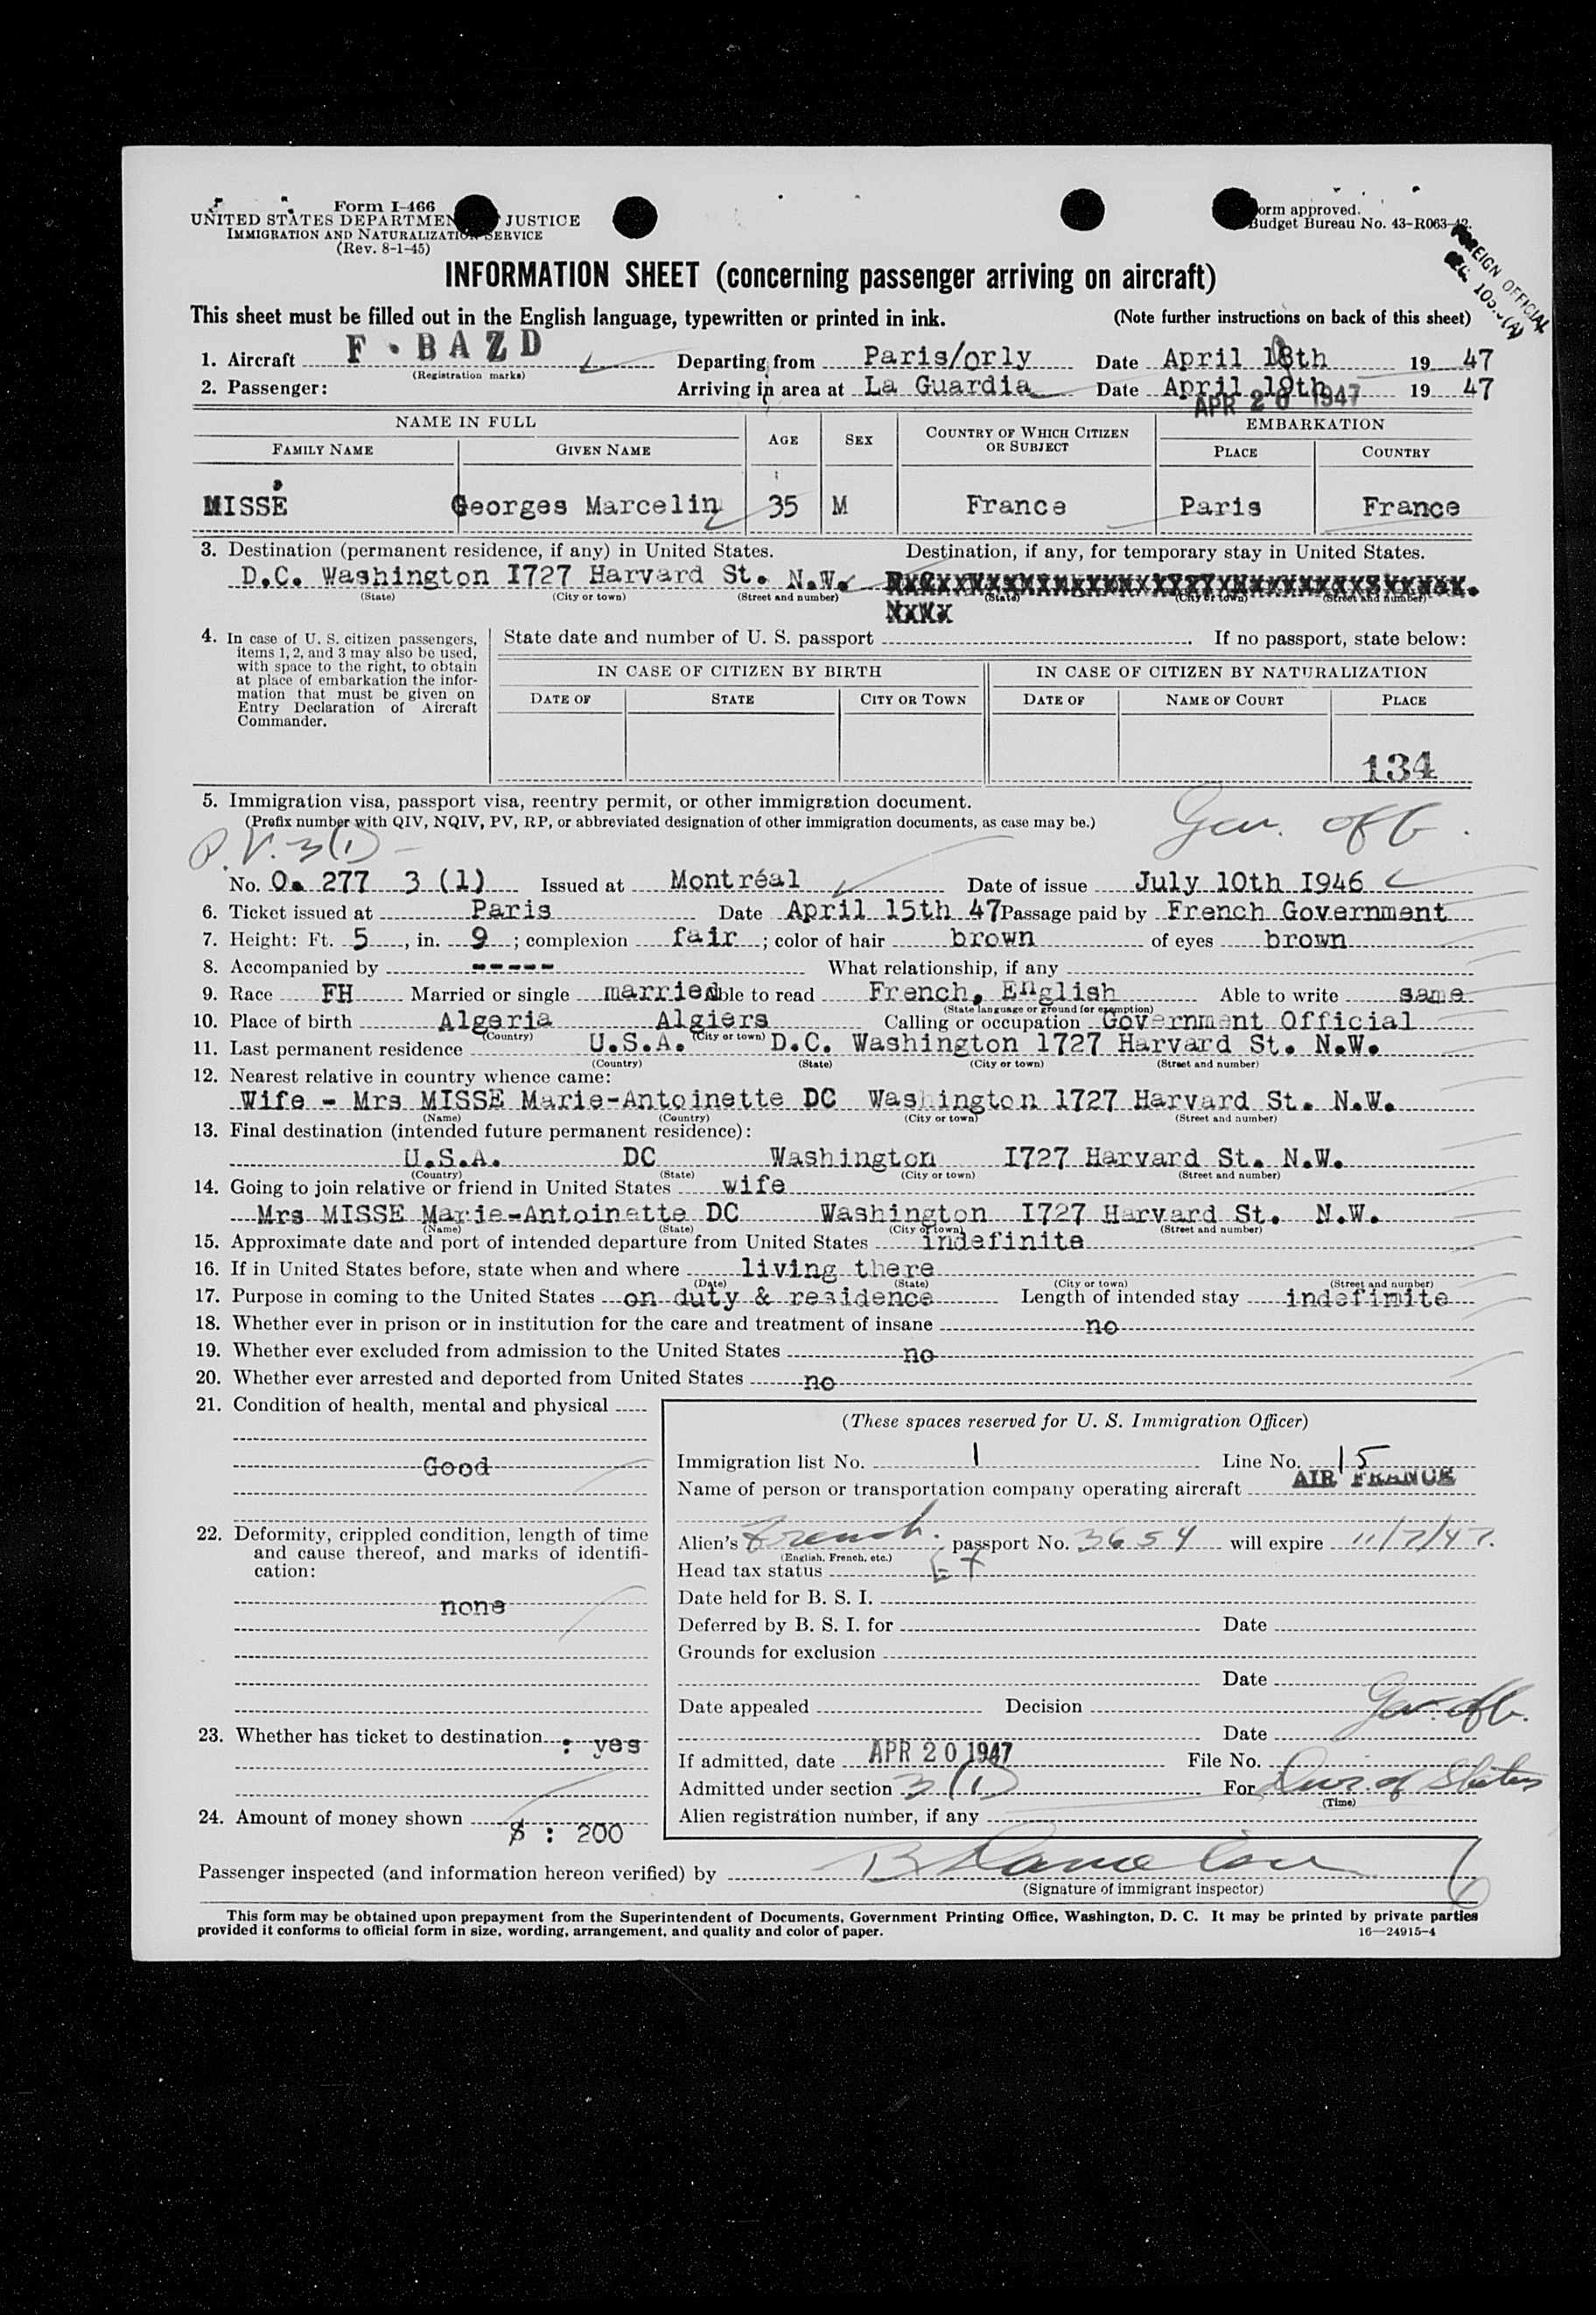 Form I-466
UNITED STATES DEPARTMEN JUSTICE
IMMIGRATION AND NATURALIZATION SERVICE
(Rev. 8-1-45)
orm approved.
Budget Bureau No. 43-R063-42.
FOREIGN OFFICIAL
INFORMATION SHEET (concerning passenger arriving on aircraft)
This sheet must be filled out in the English language, typewritten or printed in ink. (Note further instructions on back of this sheet)
1. Aircraft F-BAZD Departing from Paris/orly Date April 18th 1947
(Registration marks)
2. Passenger: Arriving in area at La Guardia Date April 19th 1947
APR 20 1947
NAME IN FULL AGE SEX COUNTRY OF WHICH CITIZEN OR SUBJECT EMBARKATION
FAMILY NAME GIVEN NAME PLACE COUNTRY
MISSÉ Georges Marcelin 35 M France Paris France
3. Destination (permanent residence, if any) in United States. Destination, if any, for temporary stay in United States.
D.C. Washington I727 Harvard St. N.W.
(State) (City or town) (Street and number) (State) (City or town) (Street and number)
4. In case of U. S. citizen passengers, items 1, 2, and 3 may also be used, with space to the right, to obtain at place of embarkation the information that must be given on Entry Declaration of Aircraft Commander.
State date and number of U. S. passport If no passport, state below:
IN CASE OF CITIZEN BY BIRTH IN CASE OF CITIZEN BY NATURALIZATION
DATE OF STATE CITY OR TOWN DATE OF NAME OF COURT PLACE
134
5. Immigration visa, passport visa, reentry permit, or other immigration document.
(Prefix number with QIV, NQIV, PV, RP, or abbreviated designation of other immigration documents, as case may be.)
P.V. 3(1) Gov. off.
No. O. 277 3 (1) Issued at Montréal Date of issue July 10th I946
6. Ticket issued at Paris Date April 15th 47 Passage paid by French Government
7. Height: Ft. 5, in. 9; complexion fair; color of hair brown of eyes brown
8. Accompanied by ----- What relationship, if any
9. Race FH Married or single married Able to read French, English Able to write same
(State language or ground for exemption)
10. Place of birth Algeria Algiers Calling or occupation Government Official
(Country) (City or town)
11. Last permanent residence U.S.A. D.C. Washington 1727 Harvard St. N.W.
(Country) (State) (City or town) (Street and number)
12. Nearest relative in country whence came:
Wife - Mrs MISSE Marie-Antoinette DC Washington 1727 Harvard St. N.W.
(Name) (Country) (City or town) (Street and number)
13. Final destination (intended future permanent residence):
U.S.A. DC Washington I727 Harvard St. N.W.
(Country) (State) (City or town) (Street and number)
14. Going to join relative or friend in United States wife
Mrs MISSE Marie-Antoinette DC Washington I727 Harvard St. N.W.
(Name) (State) (City or town) (Street and number)
15. Approximate date and port of intended departure from United States indefinite
16. If in United States before, state when and where living there
(Date) (State) (City or town) (Street and number)
17. Purpose in coming to the United States on duty & residence Length of intended stay indefimite
18. Whether ever in prison or in institution for the care and treatment of insane no
19. Whether ever excluded from admission to the United States no
20. Whether ever arrested and deported from United States no
21. Condition of health, mental and physical
Good
22. Deformity, crippled condition, length of time and cause thereof, and marks of identification:
none
23. Whether has ticket to destination : yes
24. Amount of money shown $ : 200
(These spaces reserved for U. S. Immigration Officer)
Immigration list No. 1 Line No. 15
Name of person or transportation company operating aircraft AIR FRANCE
Alien's French passport No. 3654 will expire 11/7/47.
(English, French, etc.)
Head tax status
Date held for B. S. I.
Deferred by B. S. I. for Date
Grounds for exclusion
Date
Date appealed Decision
Gov. off.
Date
If admitted, date APR 20 1947 File No.
Admitted under section 3(1) For Dur. of Status
(Time)
Alien registration number, if any
Passenger inspected (and information hereon verified) by
(Signature of immigrant inspector)
This form may be obtained upon prepayment from the Superintendent of Documents, Government Printing Office, Washington, D. C. It may be printed by private parties
provided it conforms to official form in size, wording, arrangement, and quality and color of paper. 16—24915-4